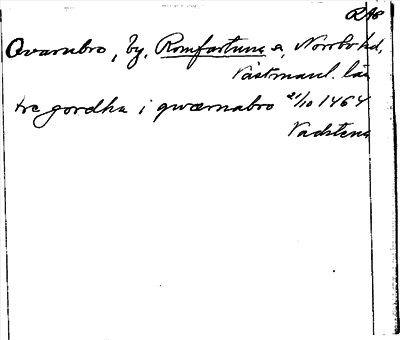 RAp
Qvarnbro, by, Romfartuna s., Norrbo hd,
Västmanl. län
tre gordha i qwærnabro 21/10 1464
Vadstena